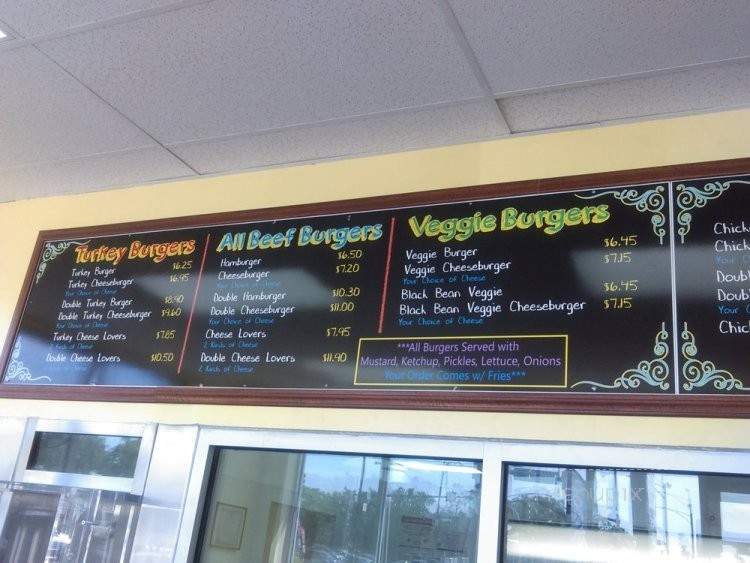 Turkey Burgers
Turkey Burger $6.25
Turkey Cheeseburger $6.95
Your Choice of Cheese
Double Turkey Burger $8.90
Double Turkey Cheeseburger $9.60
Your Choice of Cheese
Turkey Cheese Lovers $7.65
2 Kinds of Cheese
Double Cheese Lovers $10.50
2 Kinds of Cheese
All Beef Burgers
Hamburger $6.50
Cheeseburger $7.20
Your Choice of Cheese
Double Hamburger $10.30
Double Cheeseburger $11.00
Your Choice of Cheese
Cheese Lovers $7.95
2 Kinds of Cheese
Double Cheese Lovers $11.90
2 Kinds of Cheese
Veggie Burgers
Veggie Burger $6.45
Veggie Cheeseburger $7.15
Your Choice of Cheese
Black Bean Veggie $6.45
Black Bean Veggie Cheeseburger $7.15
Your Choice of Cheese
***All Burgers Served with
Mustard, Ketchup, Pickles, Lettuce, Onions
Your Order Comes w/ Fries***
Chick
Chick
Your
Doubl
Doubl
Your C
Chic